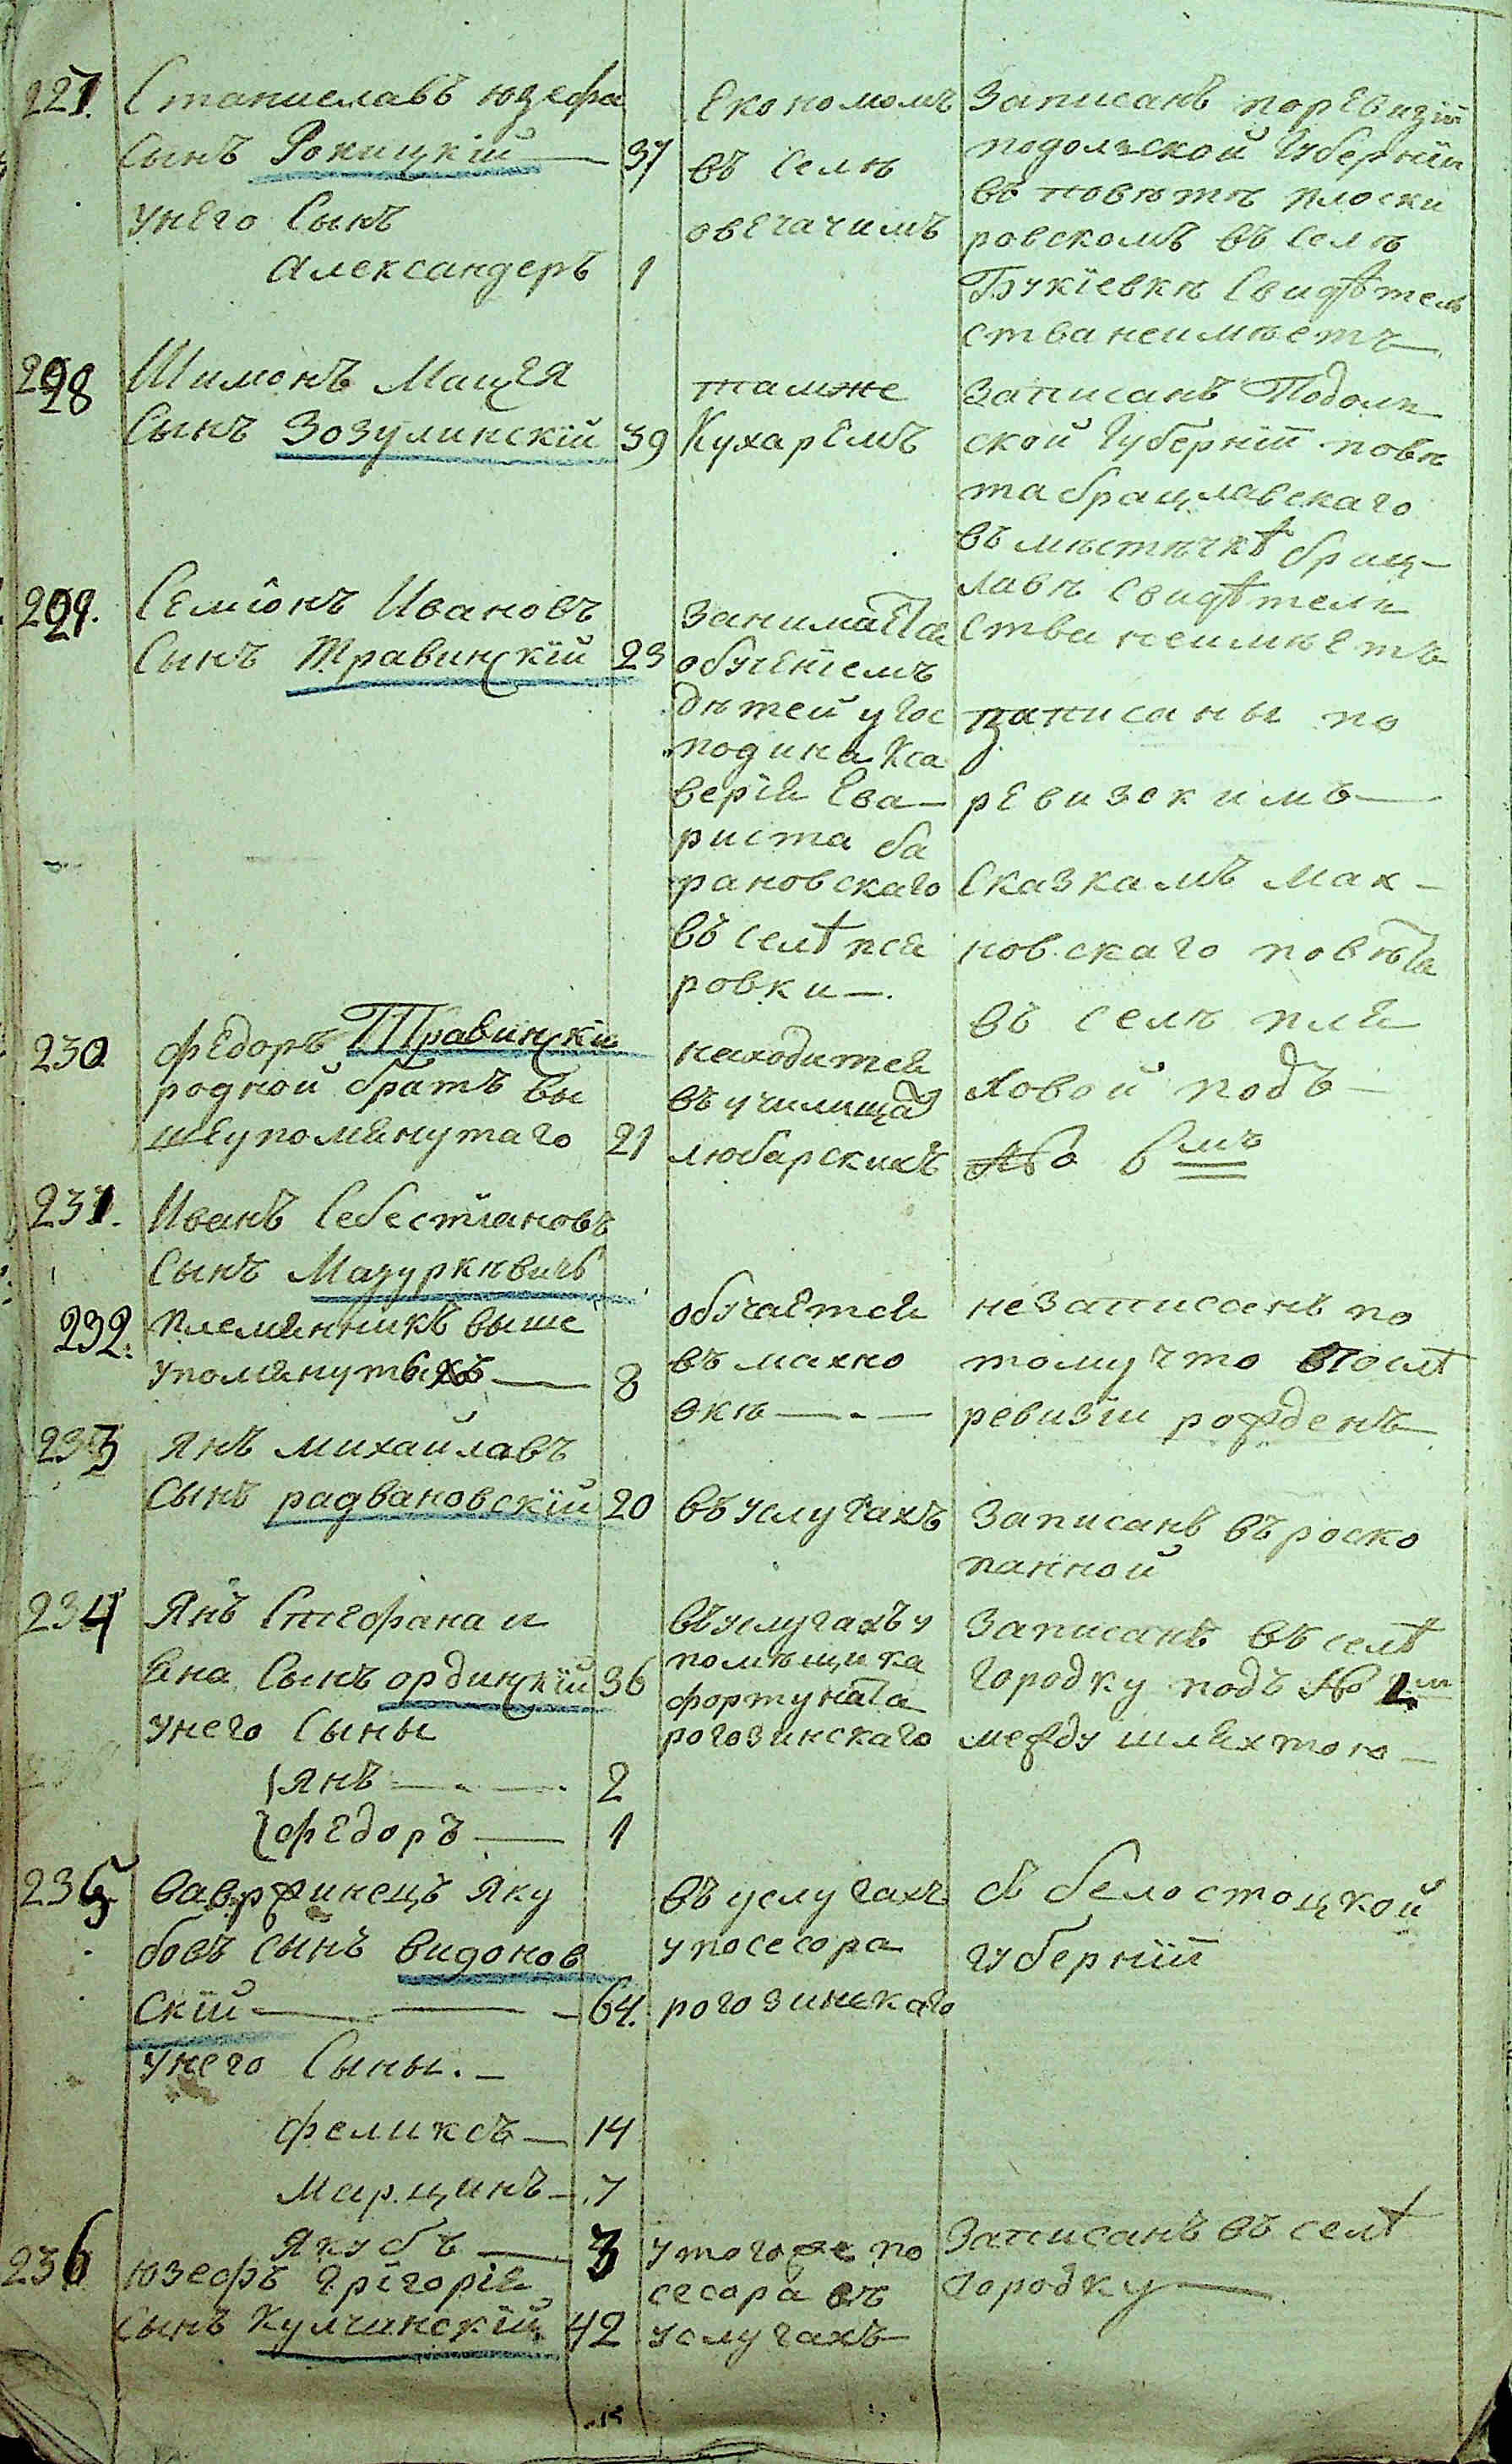 227. Станиславъ юзефа
сынъ Рокицкій — 37
унего Сынъ
Александеръ 1
Економомъ
въ селѣ
овечачимъ
Записанъ поревизіи
подолской Губерніи
въ повѣтѣ плоски
ровскомъ въ селѣ
Свидѣтель
ства неимѣетъ
228 Шимонъ Мацея
Сынъ Зозулинскій 39
тамже
Кухаремъ
записанъ Подоль
ской Губерніи повѣ
та брацлавскаго
въ мѣстѣчкѣ брац-
лавѣ свидѣтель
ства неимѣетъ
229. Семіонъ Ивановъ
Сынъ Травинскій 23
занимается
обученіемъ
дѣтей у гос
подина Кса
верія Ева—
риста ба
рановскаго
въ селѣ пся
ровки—.
записаны по
ревизскимъ—
сказкамъ мах—
новскаго повѣта
въ селѣ пля
ховой подъ—
№ 6мъ
230 федоръ Травинскій
родной братъ вы
шеупомянутаго 21
находится
въ училищах
любарскихъ
231. Иванъ Себестіановъ
Сынъ Мазуркѣвичъ
232. племянникъ выше
упомянутыхъ — 8
обучается
въ махно
вкѣ —.—
незаписанъ по
тому что послѣ
ревизіи рожденъ
233 янъ михайлавъ
сынъ радвановскій 20
въ услугахъ
записанъ въ роско
панной
234 янъ Стефана и
вана Сынъ ордынскій 36
унего Сыны
янъ —.—. 2
федоръ — 1
въуслугахъ у
помѣщика
фортуната
рогозинскаго
записанъ въ селѣ
городку подъ № 1м
между шляхтою—
235 вавржинецъ яку
бовъ сынъ видонов
скій — 64.
унего Сыны.—
феликсъ — 14
марцинъ — 7
якубъ — 3
въ услугахъ
упосесора
рогозинскаго
въ белостоцкой
губерніи
236 юзефъ григорія
сынъ Кулчинскій 42
утогоже по
сесора въ
услугахъ
записанъ въ селѣ
городку—